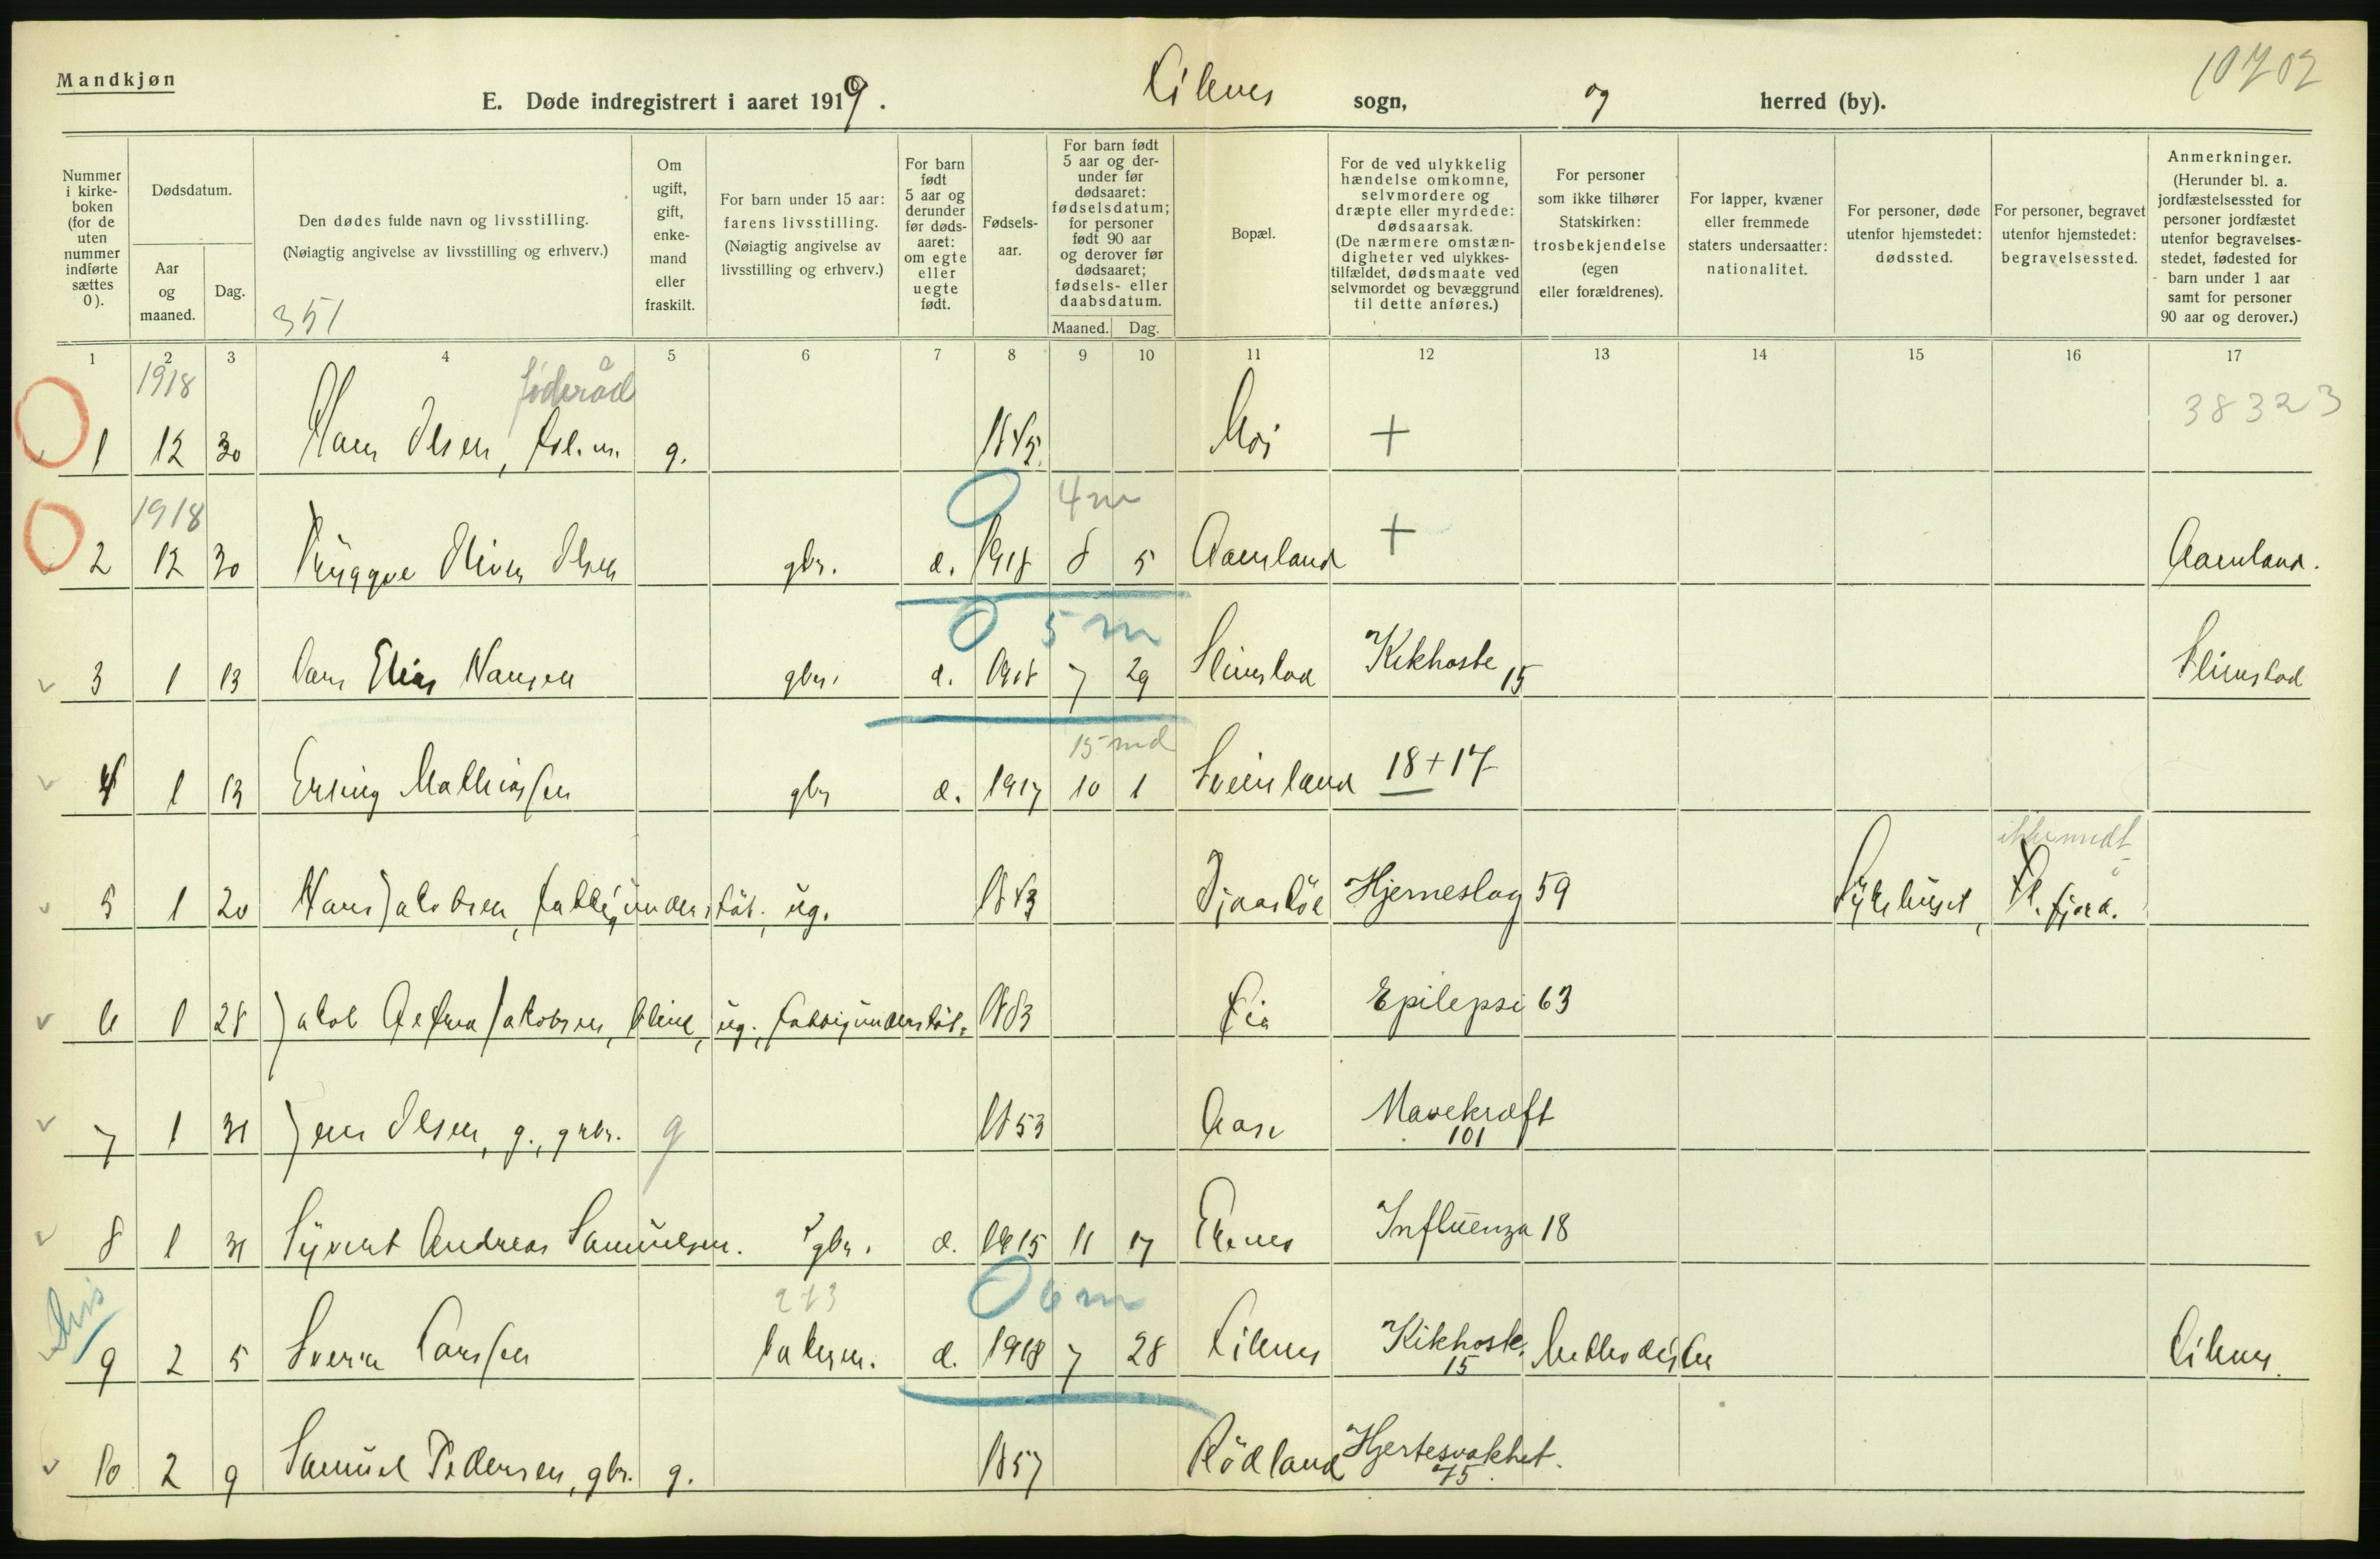 Mandkjøn
10702
E. Døde indregistrert i aaret 1919. sogn, og herred (by).
Nummer i kirkeboken (for de uten nummer indførte sættes 0).
Dødsdatum.
Aar og maaned.
Dag.
Den dødes fulde navn og livsstilling.
(Nøiagtig angivelse av livsstilling og erhverv.)
351
Om ugift, gift, enkemand eller fraskilt.
For barn under 15 aar: farens livsstilling. (Nøiagtig angivelse av livsstilling og erhverv.)
For barn født 5 aar og derunder før dødsaaret: om egte eller uegte født.
Fødselsaar.
For barn født 5 aar og derunder før dødsaaret: fødselsdatum; for personer født 90 aar og derover før dødsaaret; fødsels- eller daabsdatum.
Maaned. Dag.
Bopæl.
For de ved ulykkelig hændelse omkomne, selvmordere og dræpte eller myrdede: dødsaarsak. (De nærmere omstændigheter ved ulykkestilfældet, dødsmaate ved selvmordet og bevæggrund til dette anføres.)
For personer som ikke tilhører Statskirken: trosbekjendelse (egen eller forældrenes).
For lapper, kvæner eller fremmede staters undersaatter: nationalitet.
For personer, døde utenfor hjemstedet: dødssted.
For personer, begravet utenfor hjemstedet: begravelsessted.
Anmerkninger. (Herunder bl. a. jordfæstelsessted for personer jordfæstet utenfor begravelsesstedet, fødested for barn under 1 aar samt for personer 90 aar og derover.)
1 2 3 4 5 6 7 8 9 10 11 12 13 14 15 16 17
1918 føderåd 38323
1 12 30 Hans Olsen, g. 1845 Moi +
1918 4 m
2 12 30 Olsen gbr. 1918 8 5 Aamland + Aamland.
0 5 m
3 1 13 Lars Elias Hansen gbr. 1918 7 29 Kikhoste 15
15 md
4 1 13 Erling Mathiassen gbr 1917 10 1 Sveinland 18+17
5 1 20 Hans Jakobsen, fattigunderstøt. ug. 1843 Hjerneslag 59 Sykehuset, Fl. fjord.
6 1 28 Jakob Jakobsen, blind, ug., fattigunderstøt. 1883 Epilepsi 63
7 1 31 Jens Olsen, g., g 1853 Aase Mavekræft 101
8 1 31 Syvert Andreas Samuelsen. gbr. 1915 11 17 Ekenes Influenza 18
213 0 6 m
9 2 5 Sverre Larssen 1918 7 28 Kikhoste. 15 Methodister
10 2 9 Samuel Pedersen, gbr. g. 1857 Rödland Hjertesvakhet. 75.